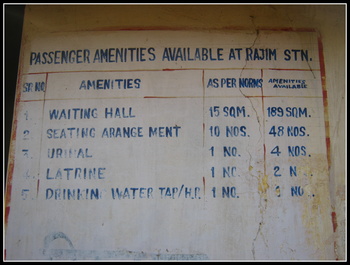 PASSENGER AMENITIES AVAILABLE AT RAJIM STN.
SR. NO. AMENITIES AS PER NORMS AMENITIES AVAILABLE
1 WAITING HALL 15 SQM. 189 SQM.
2 SEATING ARANGEMENT 10 NOS. 48 NOS.
3 URINAL 1 NO. 4 NOS.
4 LATRINE 1 NO. 2 N
5 DRINKING WATER TAP/H.P. 1 NO. NO.